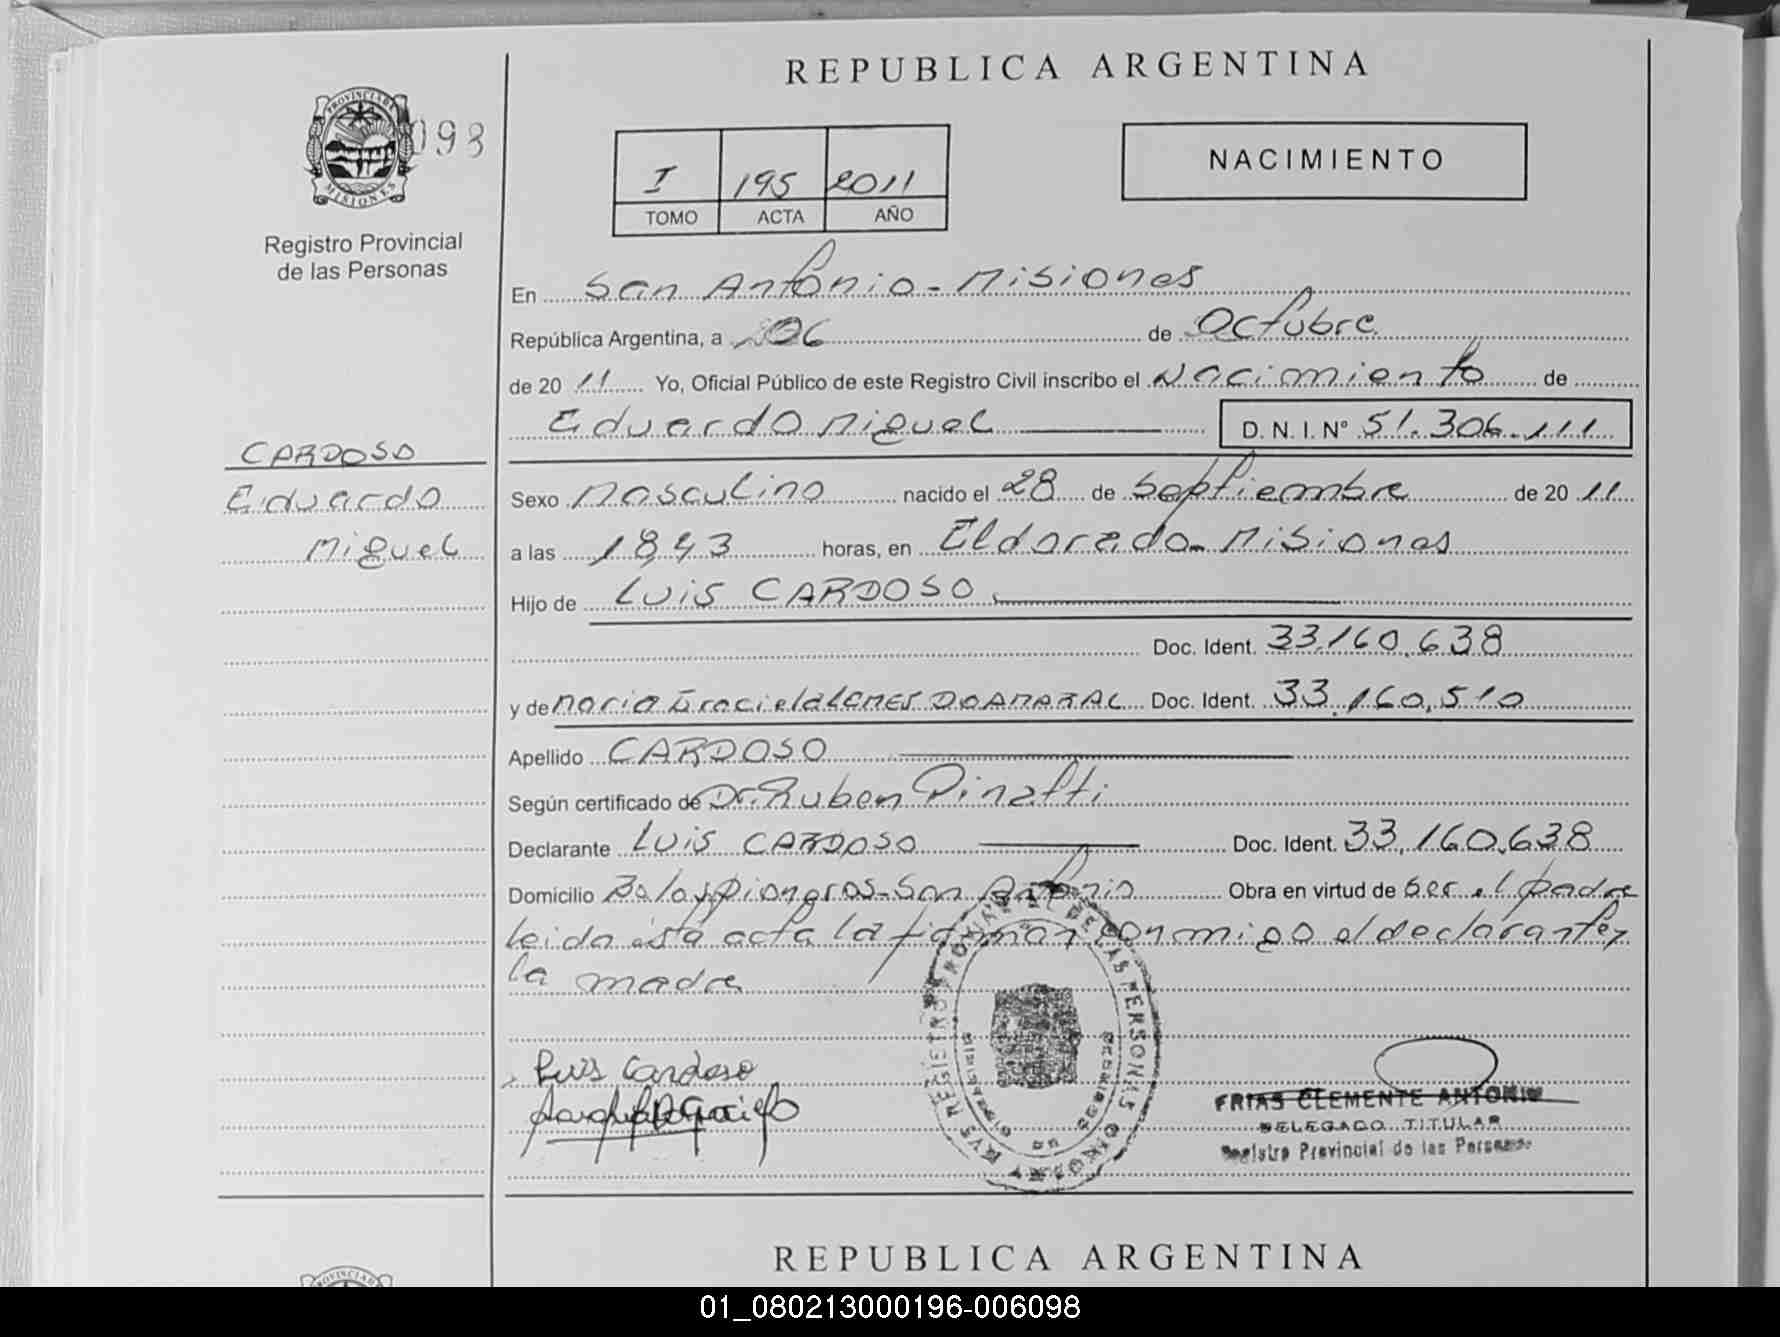 REPUBLICA ARGENTINA
PROVINCIA DE
MISIONES
098
Registro Provincial
de las Personas
I 195 2011
TOMO ACTA AÑO
NACIMIENTO
En San Antonio - Misiones
República Argentina, a 06 de Octubre
de 20 11 Yo, Oficial Público de este Registro Civil inscribo el Nacimiento de
Eduardo Miguel D. N. I. Nº 51.306.111
CARDOSO
Eduardo
Miguel
Sexo Masculino nacido el 28 de Septiembre de 20 11
a las 18,43 horas, en Eldorado - Misiones
Hijo de Luis CARDOSO
Doc. Ident. 33.160.638
y de Maria Graciela LEMES DOAMARAL Doc. Ident. 33.160.510
Apellido CARDOSO
Según certificado de Dr. Ruben Pinatti
Declarante Luis CARDOSO Doc. Ident. 33.160.638
Domicilio Pioneros - San Antonio Obra en virtud de Ser el padre
leida ésta acta la firman conmigo el declarante y
la madre
Luis Cardoso
REGISTRO PROVINCIAL DE LAS PERSONAS
FRIAS CLEMENTE ANTONIO
DELEGADO TITULAR
Registro Provincial de las Personas
REPUBLICA ARGENTINA
01_080213000196-006098